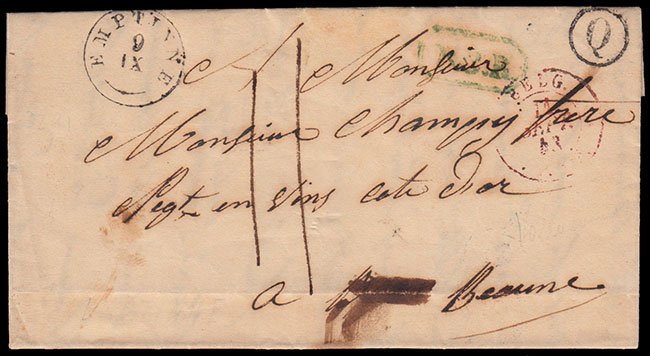 EMPTINNE
9
IX
Q
BELG.
A Monsieur
Monsieur Champy frère
Negt en vins cote d'or
11
a Beaune